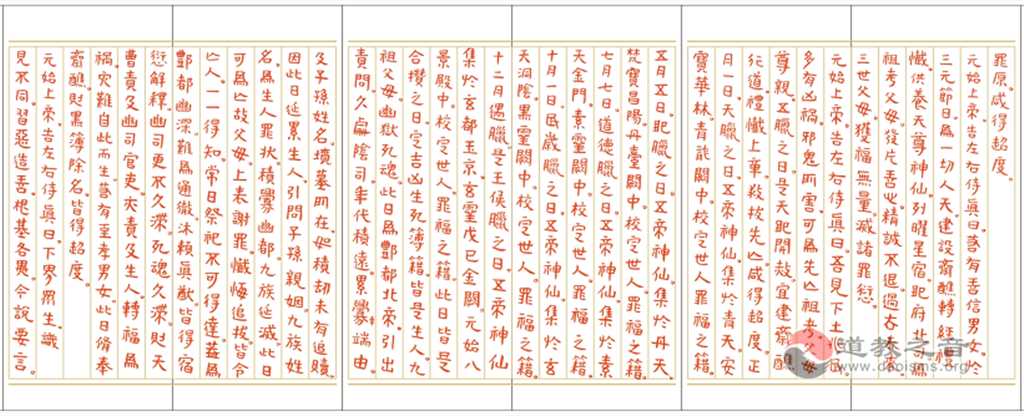 罪原咸得超度。
元始上帝告左右侍真曰若有善信男女於
三元節日為一切人天建設齋醮轉經禮
懺供養天尊神仙列曜星宿地府北司為
祖考父母發片善心精誠不退過去
三世父母獲福無量滅諸罪愆。
元始上帝告左右侍真曰吾見下土兆民
多有凶禍邪鬼所害可為先亡祖考父母
尊親五臘之日是天地開赦宜建齋醮
行道禮懺上章救拔先亡咸得超度正
月一日天臘之日五帝神仙集於青天安
寶華林青龍闕中校定世人罪福之籍
五月五日地臘之日五帝神仙集於丹天。
梵寶昌陽丹臺闕中校定世人罪福之籍。
七月七日道德臘之日五帝神仙集於素
天金門素靈闕中校定世人罪福之籍。
十月一日民歲臘之日五帝神仙集於玄
天洞陰黑靈闕中校定世人罪福之籍。
十二月遇臘是王侯臘之日五帝神仙
集於玄都玉京玄靈戊己金闕。元始八
景殿中校定世人罪福之籍。此日皆是
合攢之日定吉凶生死簿籍皆是生人九
祖父母幽獄死魂。此日為酆都北帝引出
責問久處陰司年代積遠累釁端由。
及子孫姓名墳墓所在。如積劫未有追贖。
因此日延累生人。引問子孫親姻九族姓
名為生人罪狀。積釁幽都九族延滅此日
可為亡故父母上表謝罪懺悔追拔皆令
亡人一一得知常日祭祀不可得達。蓋為
酆都幽深難為通徹。沐賴真猷皆得宿
愆解釋。幽司更不久滯。死魂久滯。則天
曹責及幽司官吏。夾責及生人。轉福為
禍。災難自此而生。若有至孝男女。此日脩奉
齋醮。則黑簿除名。皆得超度。
元始上帝告左右侍真曰下界眾生識
見不同。習惡造善。根基各異。今說要言。
道教之音
www.daoisms.org